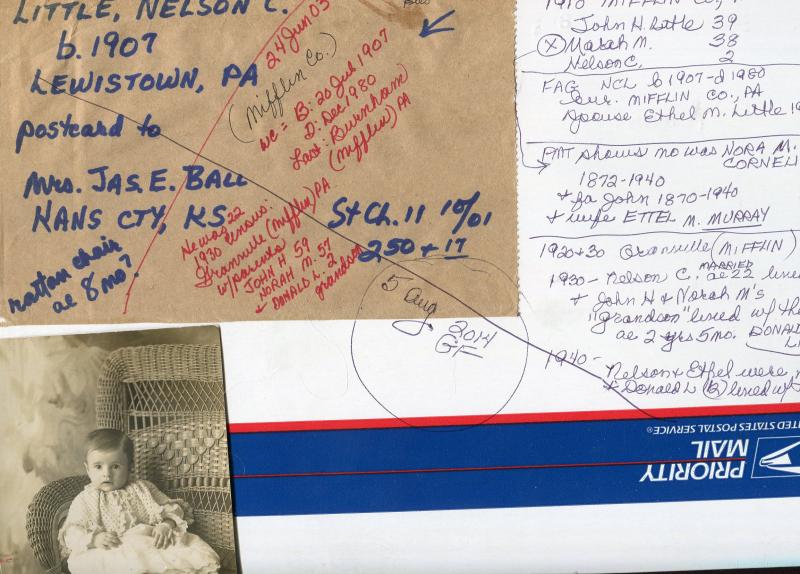 LITTLE, NELSON C.
b. 1907
LEWISTOWN, PA
postcard to
Mrs. JAS. E. BALL
KANS CTY, KS
rattan chair
ae 8 mo?
24 Jun 03
(Mifflin Co.)
WC = B: 20 Jul 1907
D: Dec 1980
Last: Burnham
(Mifflin) PA
StCh. 11 10/01
250 + 17
Newag 22
1930 census:
Granville (Mifflin) PA
w/parents
JOHN H 59
NORAH M. 57
+ DONALD L. 2
grandson
5 Aug
2014
GF
1910 MIFFLIN CO.,
John H. Little 39
(X) Marah M. 38
Nelson C. 2
FAG NCL b 1907-d 1980
bur. MIFFLIN CO., PA
Spouse Ethel M. Little
PMT shows mo was NORA M.
CORNELI
1872-1940
+ fa John 1870-1940
+ wife ETTEL M. MURRAY
1920+30 Granville (MIFFLIN)
1930- Nelson C. MARRIED ae 22 lived
+ John H & Norah M's
"grandson" lived w/
ae 2 yrs 5mo. DONALD
L
1940-
Nelson & Ethel were
+ Donald L (12) lived w/
UNITED STATES POSTAL SERVICE®
PRIORITY
MAIL